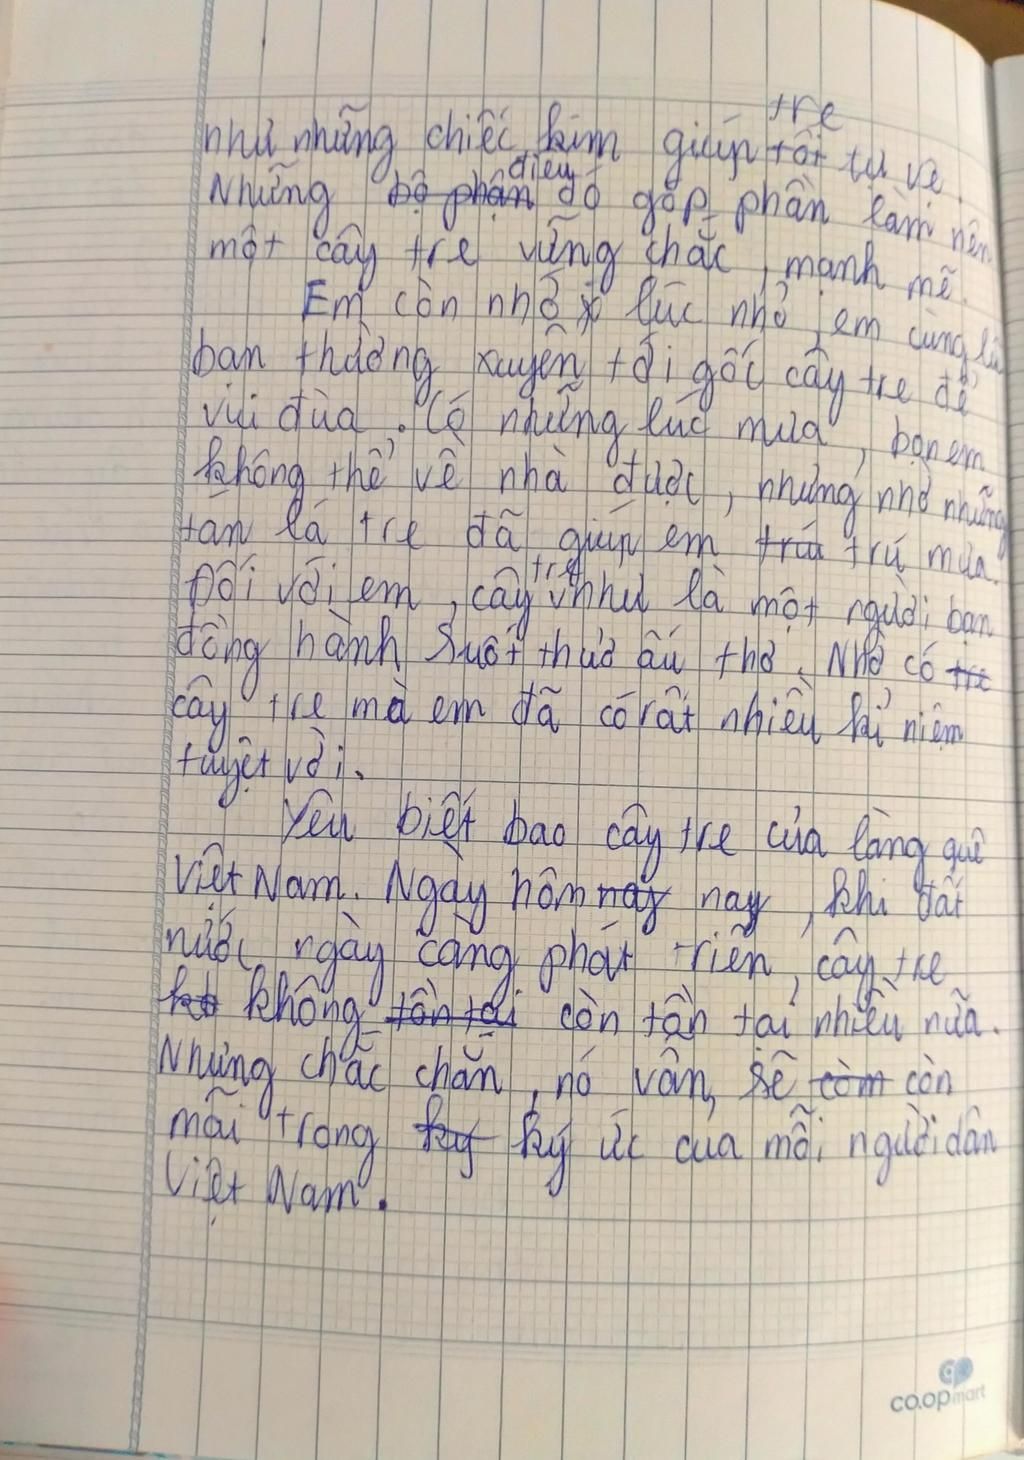 như những chiếc kim giúp tôi tre tự vệ.
Những bộ phận điều đó góp phần làm nên
một cây tre vững chắc, mạnh mẽ.
Em còn nhớ lúc nhỏ, em cùng lũ
bạn thường xuyên tới gốc cây tre để
vui đùa. Có những lúc mưa, bọn em
không thể về nhà được, nhưng nhờ những
tán lá tre đã giúp em trú trú mưa.
Đối với em, cây tre như là một người bạn
đồng hành suốt thuở ấu thơ. Nhờ có tre
cây tre mà em đã có rất nhiều kỉ niệm
tuyệt vời.
Yêu biết bao cây tre của làng quê
Việt Nam. Ngày hôm nay nay, khi đất
nước ngày càng phát triển, cây tre
không tồn tại còn tồn tại nhiều nữa.
Nhưng chắc chắn, nó vẫn sẽ còm còn
mãi trong ký ký ức của mỗi người dân
Việt Nam.
co.opmart